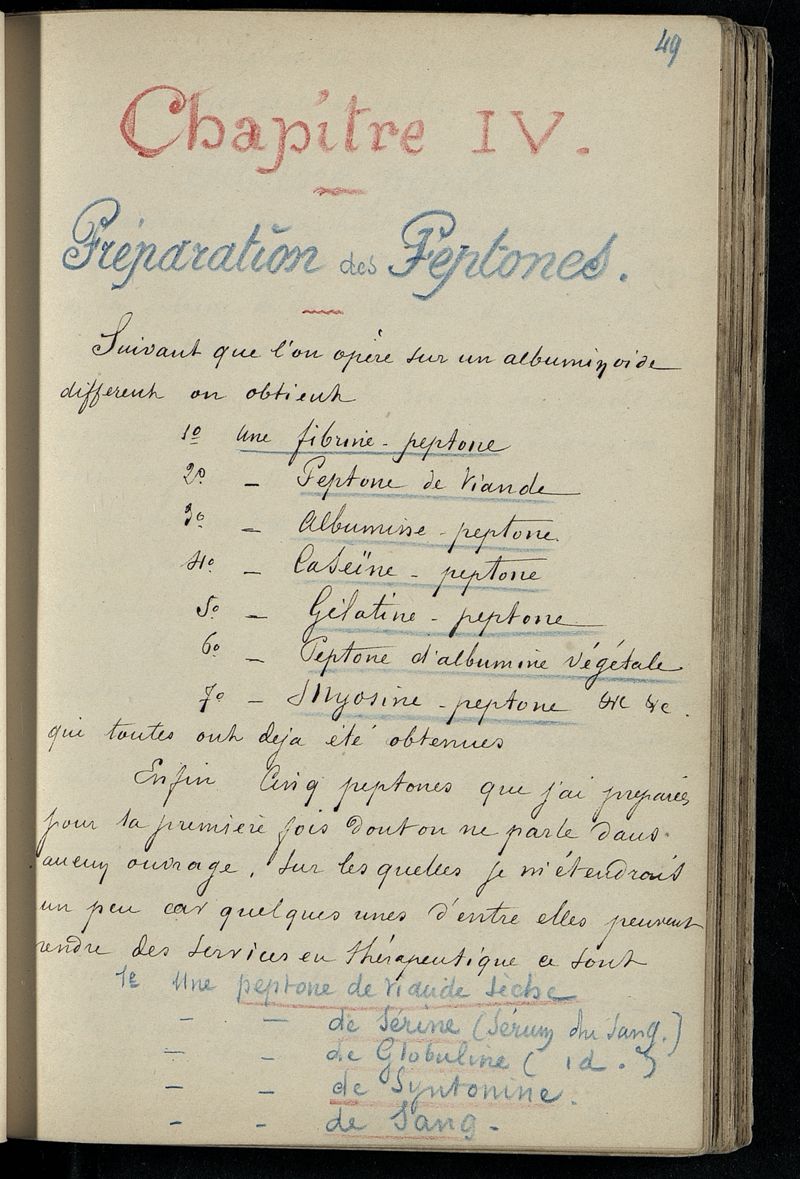 49
Chapitre IV.
Préparation des Peptones.
Suivant que l'on opère sur un albuminoïde
différent on obtient
1º une fibrine-peptone
2º – Peptone de Viande
3º – Albumine-peptone.
4º – Caséïne-peptone
5º – Gélatine-peptone
6º – Peptone d'albumine végétale
7º – Myosine-peptone &c &c.
qui toutes ont deja été obtenues
Enfin Cinq peptones que j'ai preparées
pour la premiere fois dont on ne parle dans
aucun ouvrage, sur lesquelles je m'étendrais
un peu car quelques unes d'entre elles peuvent
rendre des services en thérapeutique ce sont
1e Une peptone de viande sèche
– – de Sérine (Sérum du Sang.)
– – de Globuline ( id. )
– – de Syntonine.
– – de Sang.